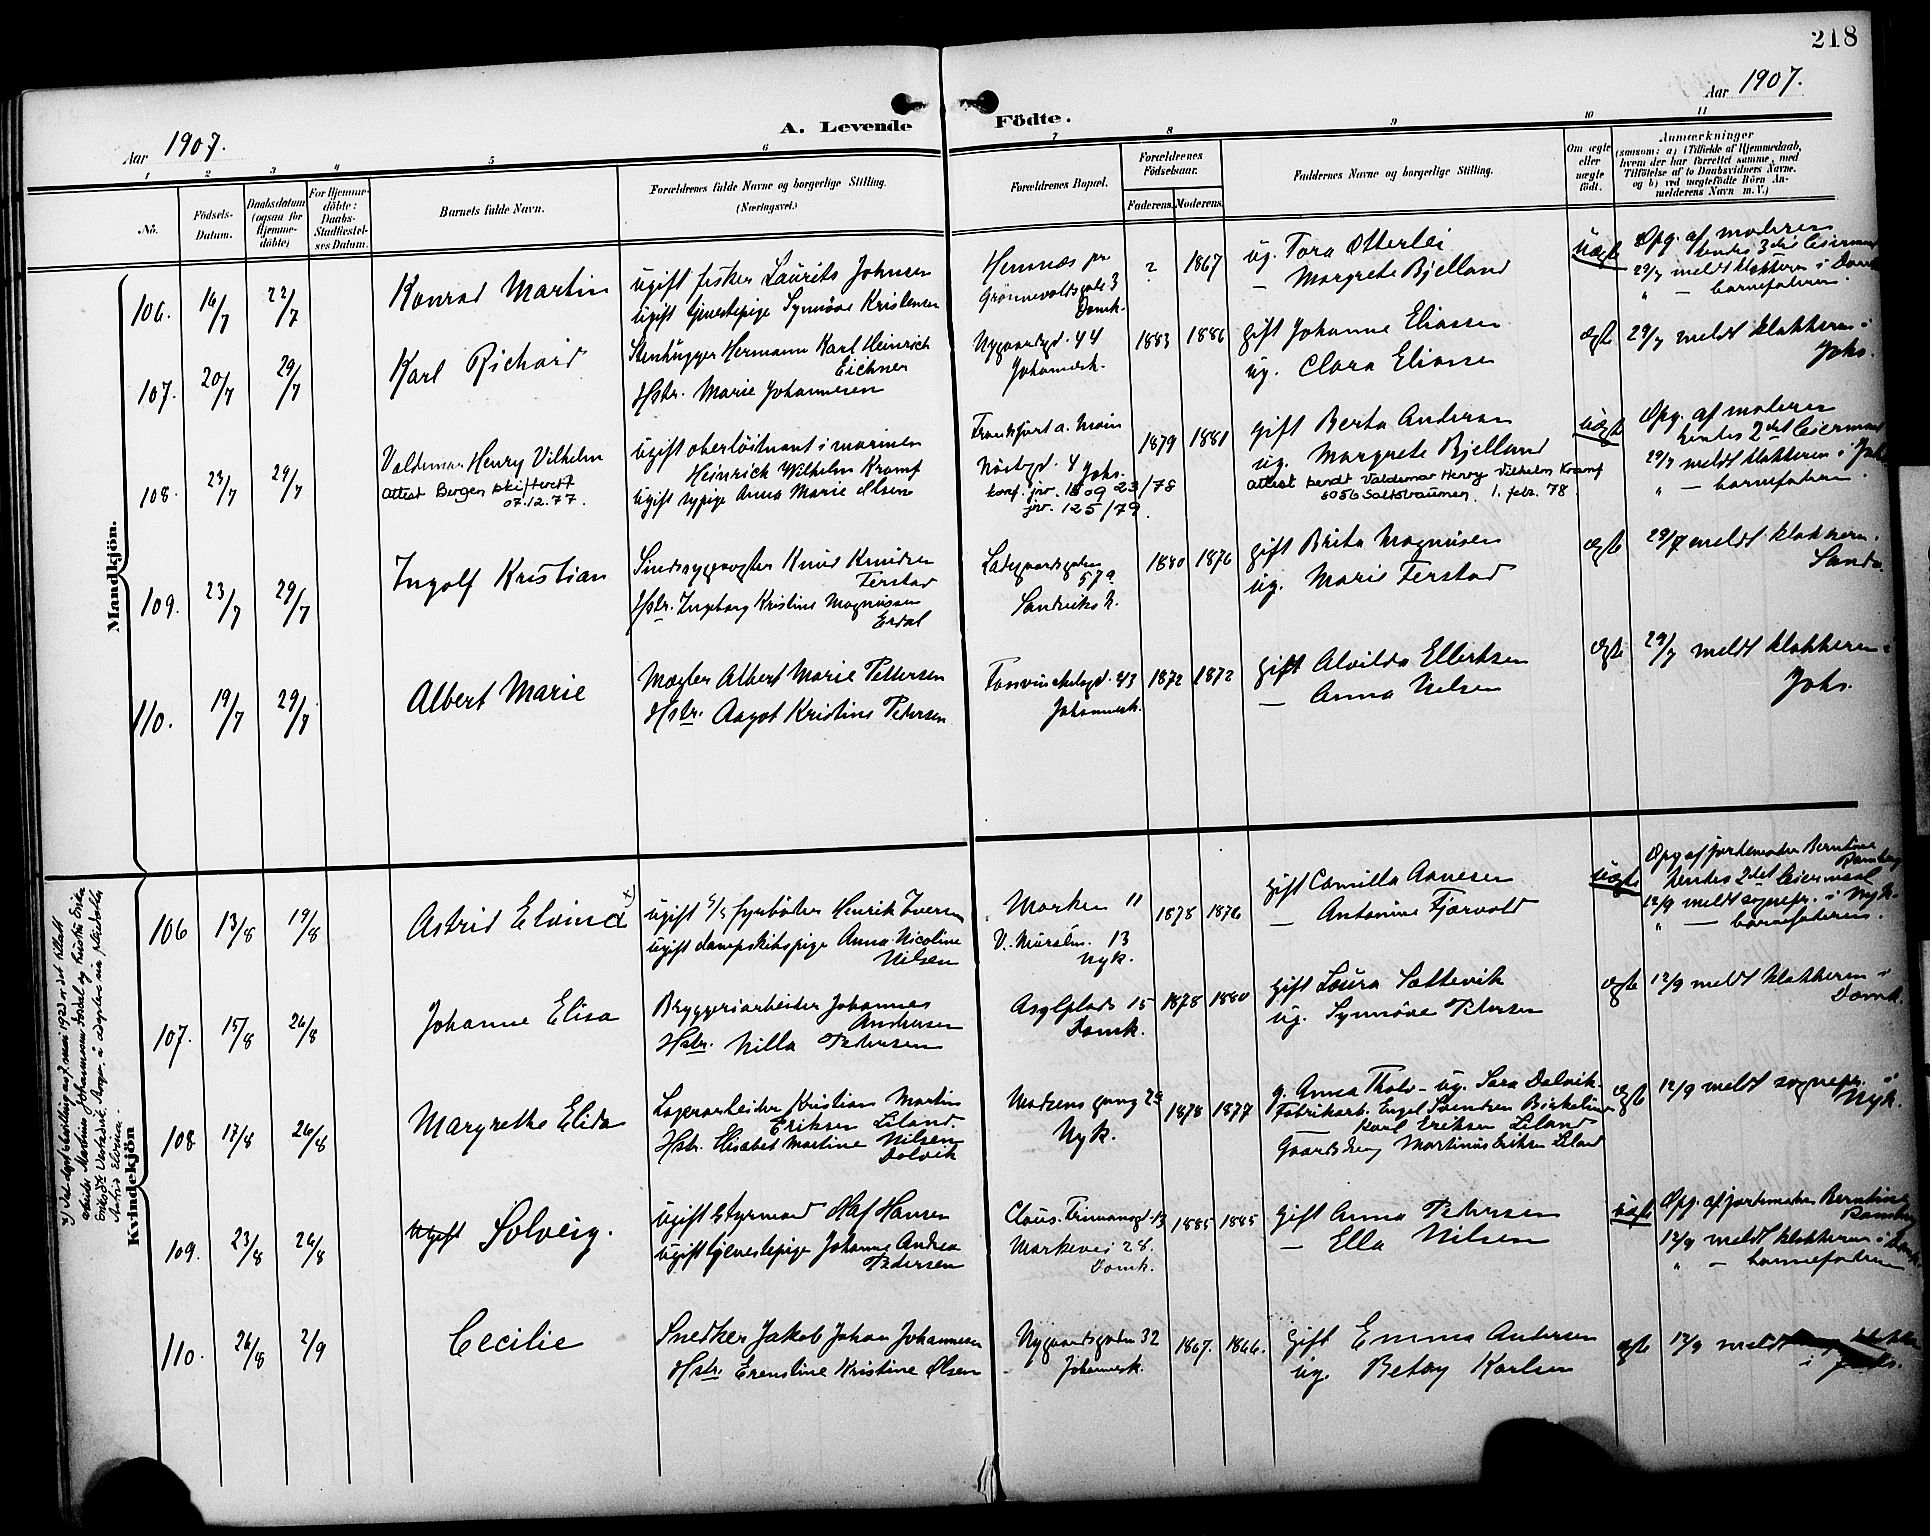 218
Aar 1907.
Aar 1907.
A. Levende Födte.
1 2 3 4 5 6 7 8 9 10 11
No.
Födsels-Datum.
Daabsdatum (ogsaa for Hjemmedöbte)
For Hjemmedöbte: Daabs-Stadfæstelses Datum.
Barnets fulde Navn.
Forældrenes fulde Navne og borgerlige Stilling.
(Næringsvei.)
Forældrenes Bopæl.
Forældrenes Födselsaar.
Faderens. Moderens.
Faddernes Navne og borgerlige Stilling.
Om ægte eller uægte födt.
Anmærkninger
(saasom: a) i Tilfælde af Hjemmedaab,
hvem der har forrettet samme, med
Tilföielse af to Daabsvidners Navne.
og b) ved uægtefödte Börn An-
melderens Navn m. V.)
Mandkjön.
106. 16/7 22/7
Konrad Martin
ugift fisker Laurits Johnsen
ugift tjenestepige Synnöve Kristensen
Hennæs pr
Grönnevoldsgade 3
Domk.
? 1867
ug. Tora Otterlei
— Margrete Bjelland
uægte
Opg. af moderen
hendes 3die leiermaal
29/7 meldt klokkeren i Domk.
" — barnefaderen.
107. 20/7 29/7
Karl Richard
Stenhugger Hermann Karl Heinrich
Eichner
Hstr. Marie Johannesen
Nygaardsgd. 44
Johannesk.
1883 1886
gift Johanne Eliassen
ug. Clara Eliassen
ægte
29/7 meldt klokkeren i
Johs.
108. 23/7 29/7
Valdemar Henry Vilhelm
Attest Bergen skifterett
07.12.77.
ugift oberlöitnant i marinen
Heinrich Wilhelm Krampf
ugift sypige Anna Marie Olsen
Frankfurt a. Main
Nöstegd. 4 Johs.
konf. jnr. 1509 23/78
jnr. 125/79.
1879 1881
gift Berta Andersen
ug. Margrete Bjelland
Attest sendt Valdemar Henry Vilhelm Krampf
8056 Saltstraumen. 1. febr. 78.
uægte
Opg. af moderen
hendes 2det leiermaal
29/7 meldt klokkeren i Johs.
" — barnefaderen.
109. 23/7 29/7
Ingolf Kristian
Sindssygevogter Knud Knudsen
Ferstad
Hstr. Ingeborg Kristine Magnussen
Erdal
Ladegaardsgaden
57a
Sandviks k.
1880 1876
gift Brita Magnusen
ug. Marie Ferstad
ægte
29/7 meldt klokkeren.
Sandv.
110. 19/7 29/7
Albert Marie
Mægler Albert Marie Pettersen
Hstr. Aagot Kristine Petersen
Fosswinckelsgd. 43
Johannesk.
1872 1872
gift Alvilda Ellertsen
— Anna Nielsen
ægte
29/7 meldt klokkeren i
Johs.
Kvindekjön
106 13/8 19/8
Astrid Elvina x)
ugift s/s fyrböder Henrik Iversen
ugift dampskibspige Anna Nicoline
Nilsen
Marken 11
V. Muralm. 13
Nyk.
1878 1876
gift Camilla Aanesen
— Antonine Fjærvold
uægte
Opg af jordemoder Berntine
Ramberg
hendes 2det leiermaal
12/9 meldt sognepr. i Nyk.
" — barnefaderen.
107. 15/8 26/8
Johanne Elisa
Bryggeriarbeider Johannes
Andersen
Hstr. Nilla Pedersen
Asylplads 15
Domk.
1878 1880
gift Laura Sættevik
ug. Synnöve Petersen
ægte
12/9 meldt klokkeren i
Domk.
108 17/8 26/8
Margrethe Elida
Lagerarbeider Kristian Martin
Eriksen Liland.
Hstr. Elisabet Martine Nilsen
Dalvik
Madsens gang 28
Nyk.
1878 1877
g. Anna Thole - ug. Sara Dalvik.
Fabrikarb. Engel Svendsen Birkeland
Karl Eriksen Liland
Gaardsdreng Martinus Eriksen Liland
ægte
12/9 meldt sognepr. i
Nyk.
109. 23/8 26/8
Solveig.
ugift Styrmand Olaf Hansen
ugift tjenestepige Johanne Andrea
Pedersen
Claus Frimansgd. 13
Markevei 28.
Domk.
1885 1885
gift Anna Petersen
— Ella Nilsen
uægte
Opg. af jordemoder Berntine
Ramberg
12/9 meldt klokkeren i Domk.
" — barnefaderen
110. 26/8 2/9
Cecilie
Snedker Jakob Johan Johannesen
Hstr. Erenstine Kristine Olsen
Nygaardsgaden 32
Johannesk.
1867. 1866.
gift Emma Andersen
ug. Betzy Karlsen
ægte
12/9 meldt klokk.
i Johs.
x) Ved kgl. bevilling av 7. mai 1923 er det tillatt
Martin Johannessen Fordal og hustru
Bergen, å adoptere sin pleiedatter
Astrid Elvina.